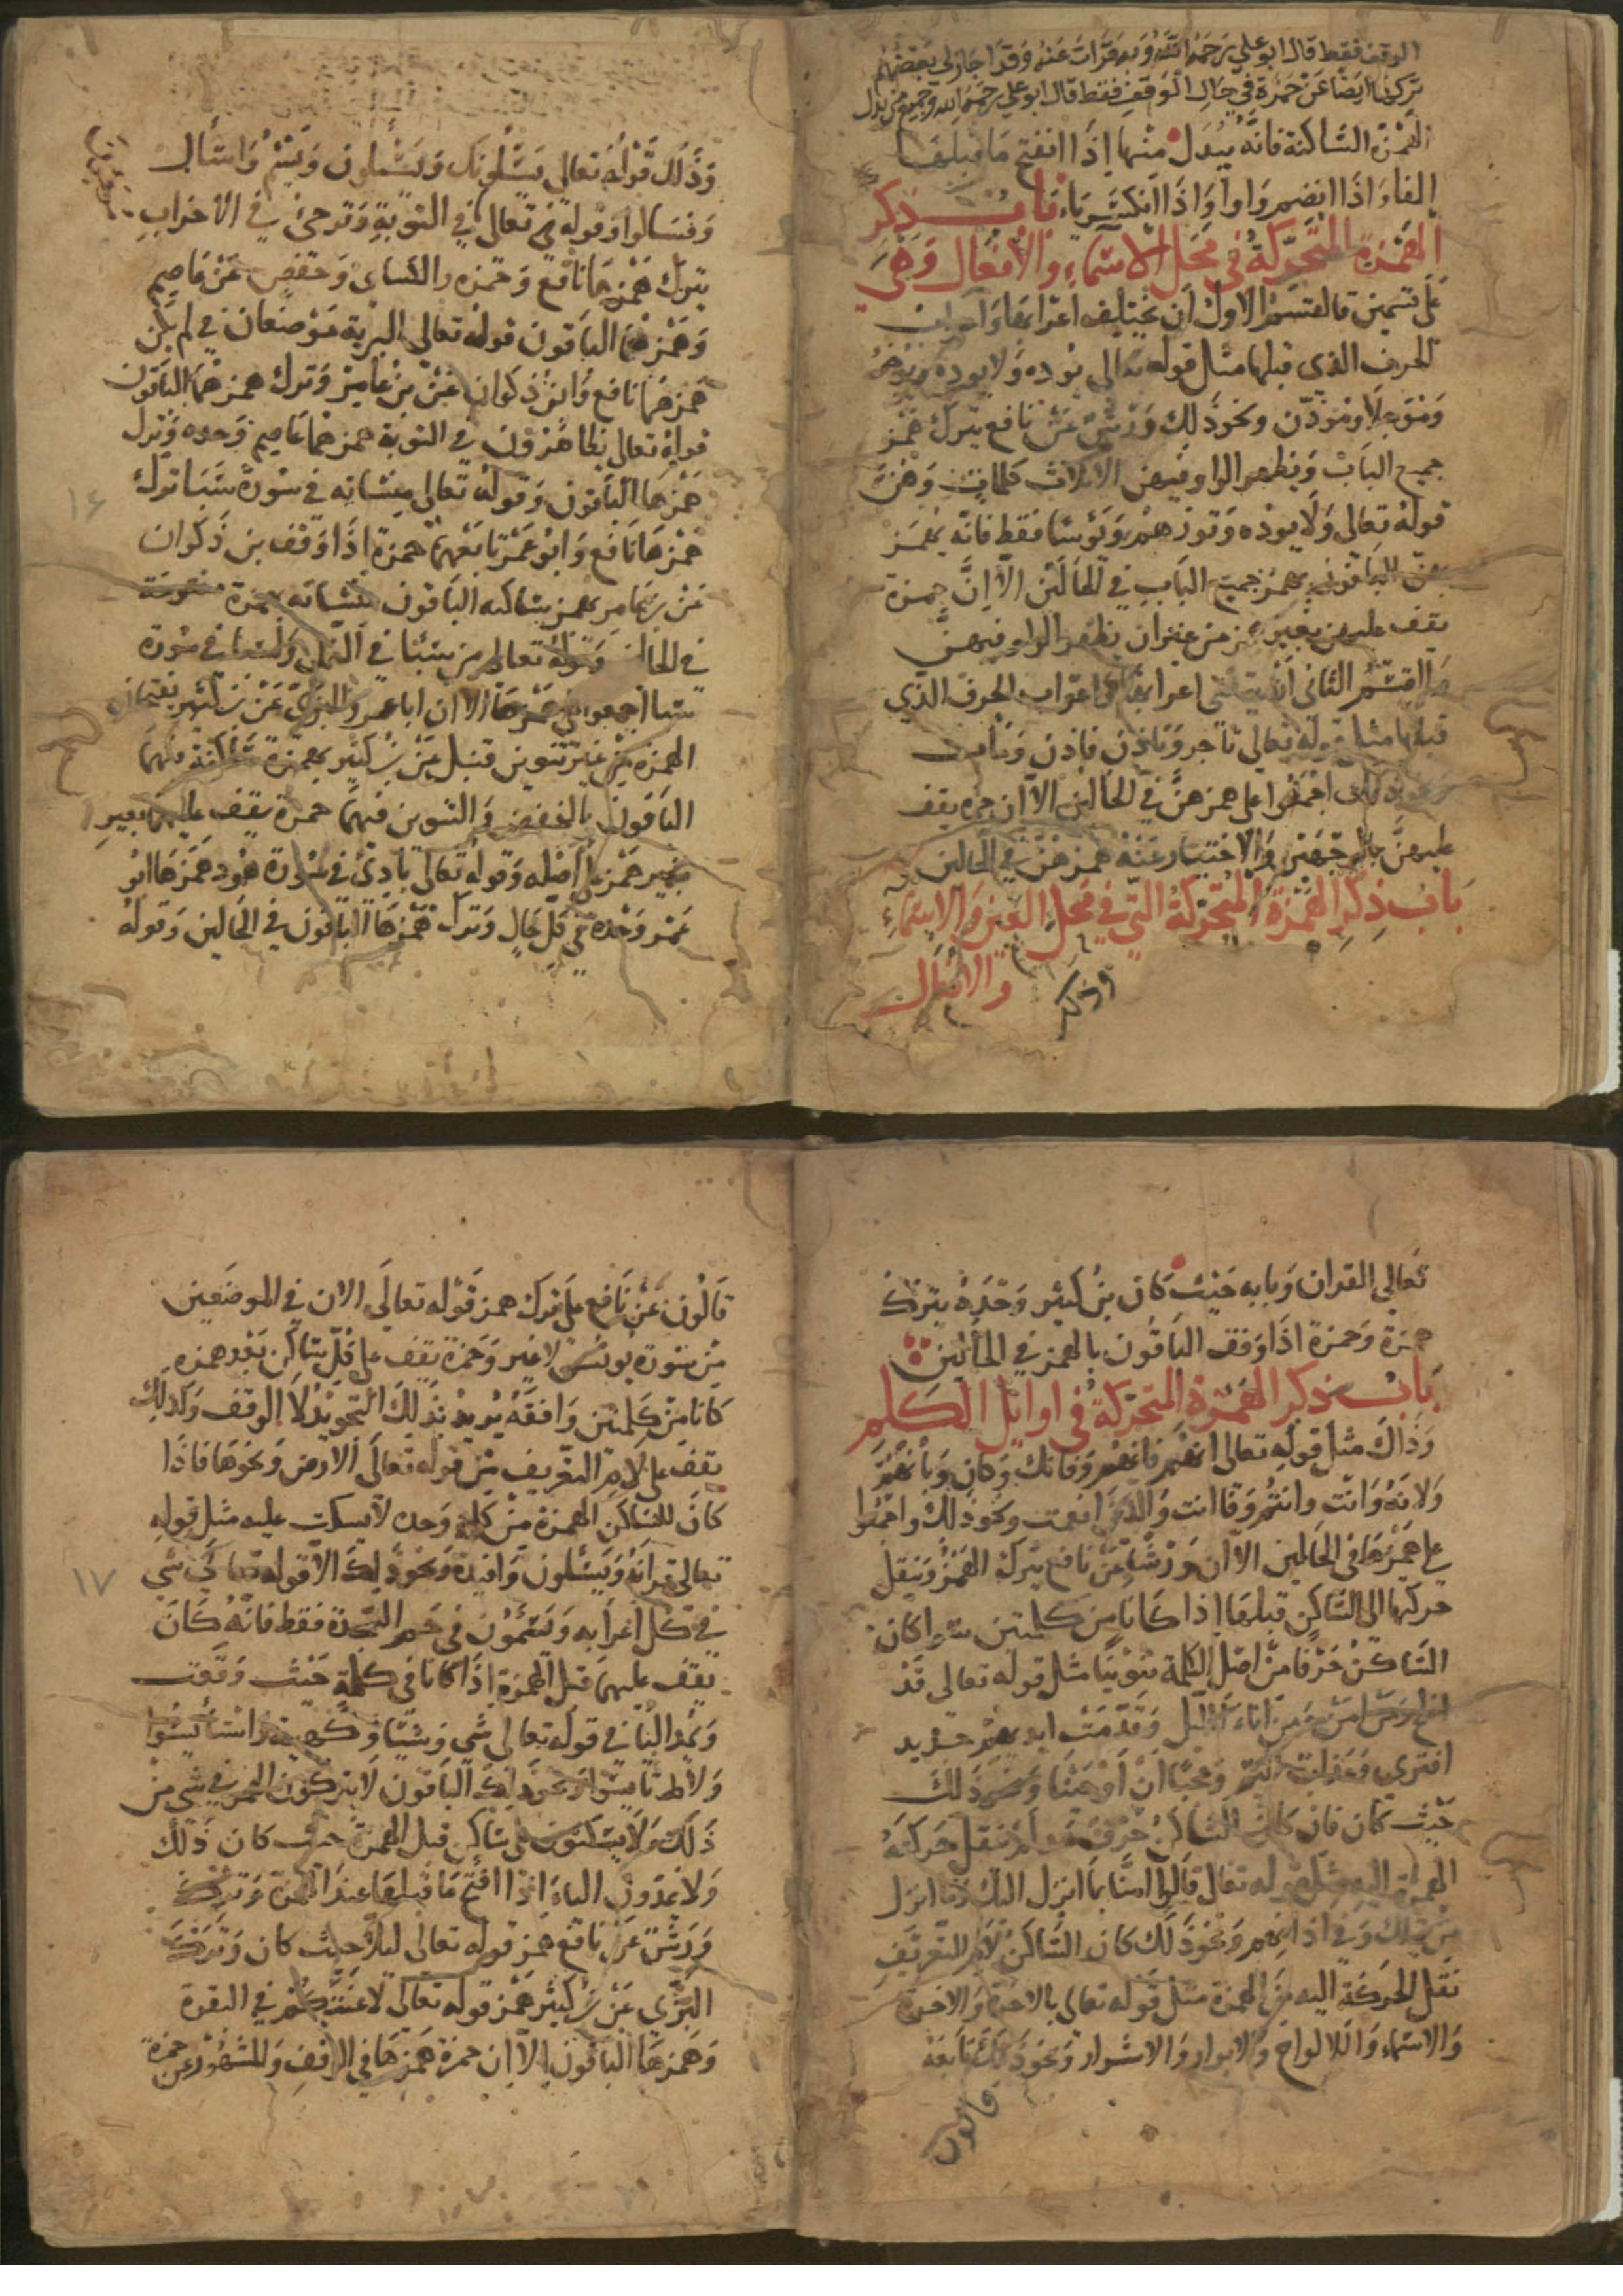 الوقف فقط قال ابو علي رحمه الله وبه قرات عنه وقد اجاز لي بعضهم
تركها ايضا عن حمزة في حال الوقف فقط قال ابو علي رحمه الله وجميع من يدل
الهمزة الساكنة فانه يبدل منها اذا انفتح ما قبلها
الفا واذا انضم واوا واذا انكسر ياء باب ذكر
الهمزة المتحركة في محل الاسماء والافعال وهي
على قسمين فالقسم الاول ان يختلف اعرابها واعراب
الحرف الذي قبلها مثل قوله تعالى يوده ولا يوده ويوخر
وموجلا وموذن ونحو ذلك ورش عن نافع يترك همز
جميع الباب ويظهر الواو فيهن الا ثلاث كلمات وهن
قوله تعالى ولا يوده وتوزهم ويوسا فقط فانه يهمز
هن الباقون بهمز جميع الباب في الحالين الا ان حمزة
يقف عليهن بغير همز من غير ان يظهر الواو فيهن
والقسم الثاني ان اعرابها واعراب الحرف الذي
قبلها مثل قوله تعالى تاجر وتاذن فاذن
ونحو ذلك اجمعوا على همزهن في الحالين الا ان حمزه يقف
عليهن بالوجهين والاختيار عنه همزهن في الحالين
باب ذكر الهمزة المتحركة التي في محل العين والاسماء
والافعال
وذلك
وذلك قوله تعالى يسئلونك ويسئلون ويسئم واسال
وفسالوا وقوله تعالى في التوبة وترجئ في الاحزاب
بترك همزها نافع وحمزه والكساي وحفص عن عاصم
وهمزهما الباقون قوله تعالى البرية موضعان في لم يكن
همزهما نافع وابن ذكوان عن بن عامر وترك همزهما الباقون
قوله تعالى يظاهرون في التوبة همزهما عاصم وحده وترك
همزها الباقون وقوله تعالى منساته في سورة سبا ترك
١٦
همزها نافع وابو عمر تابعهما حمزة اذا وقف بن ذكوان
عن بن عامر بهمز ساكنه الباقون منساته بهمزة مفتوحة
في الحالين وقوله تعالى من سبئا في النمل ولسبا في سورة
سبا اجمعوا على همزها الا ان ابا عمر والبزي عن بن كثير يفتحان
الهمزه من غير تنوين قنبل عن بن كثير بهمزة ساكنة فيهما
الباقون بالخفض والتنوين فيهما حمزة يقف عليهما بغير
بغير همز على اصله وقوله تعالى بادئ في سورة هود همزها ابو
عمر وحده في كل حال وترك همزها الباقون في الحالين وقوله
تعالى القران وبابه حيث كان بن كثير وحده يترك
همزة وحمزة اذا وقف الباقون بالهمز في الحالين
باب ذكر الهمزة المتحركة في اوايل الكلم
وذلك مثل قوله تعالى انهم فانهم وفانك وكان وبانهم
ولانه وانت وانتم وفاانت والذي انعمت ونحو ذلك واجمعوا
على همزها في الحالين الا ان ورشا عن نافع يترك الهمز وينقل
حركتها الى الساكن قبلها اذا كانا من كلمتين سوا كان
الساكن حرفا من اصل الكلمة تنوينا مثل قوله تعالى قد
افلح ومن امن ومن اناء الليل وقدمت ايديهم جديد
افترى وعجبا ان اوحينا ونحو ذلك
حيث كان فان كان الساكن حرف مد لم ينقل حركته
الهمزة اليه مثل قوله تعالى قالوا امنا بما انزل اليك وما انزل
من قبلك وفي اذانهم ونحو ذلك كان الساكن لام التعريف
نقل الحركة اليه من الهمزة مثل قوله تعالى بالاخرة والاخرة
والاسماء والالواح والابرار والاشرار ونحو ذلك تابعه
قالون
قالون عن نافع على ترك همز قوله تعالى الان في الموضعين
من سورة يونس لا غير وحمزة يقف على كل ساكن بعد همزه
كانا من كلمتين وافقه يريد بذلك التجويد لا الوقف وكذلك
يقف على لام التعريف من قوله تعالى الارض ونحوها فاذا
كان الساكن الهمزة من كلمة وحده لا يسكت عليه مثل قوله
تعالى قرانه ويسئلون وافيدة ونحو ذلك الا قوله تعالى شي
١٧
في كل اعرابه ويسئمون في حم السجدة فقط فانه كان
يقف عليهما قبل الهمزة اذا كانا في كلمة حيث وقعت
وبمد اليا في قوله تعالى شي وشيئا وكهيئة واستايسوا
ولا تايسوا ونحو ذلك الباقون لا يتركون الهمز في شي من
ذلك ولا يسكتون على ساكن قبل الهمزة حيث كان ذلك
ولا يمدون الياء اذا افتح ما قبلها عند الهمزة وترك
ورش عن نافع همز قوله تعالى ليلا حيث كان وترك
البزي عن بن كثير همز قوله تعالى لاعنتكم في البقرة
وهمزها الباقون الا ان حمزة همزها في الوقف والمشهور عن حمزة